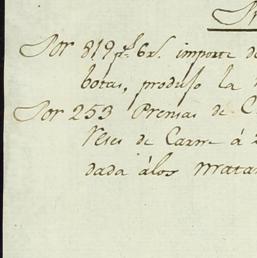 Por 819 ps. 6 rs. importe de
botas, produso la
Por 253 Prensas de C
reses de Carne á 2
dada álos matan